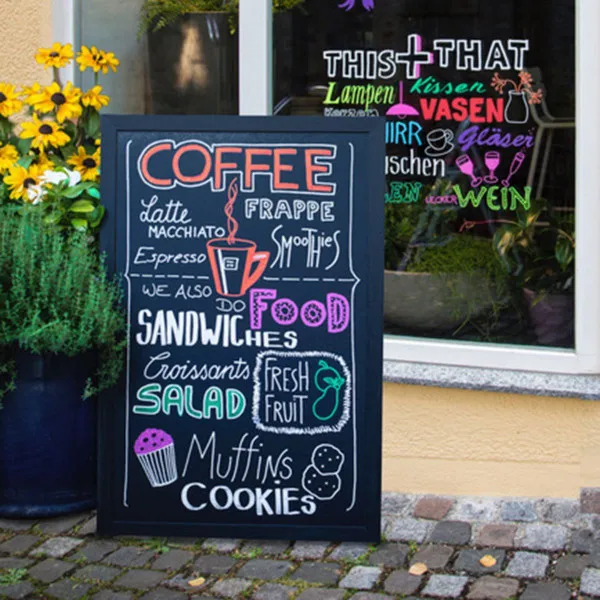 COFFEE
Latte
MACCHIATO
FRAPPE
Espresso
SMOOTHIES
WE ALSO DO FOOD
SANDWICHES
Croissants
SALAD
FRESH
FRUIT
MUFFINS
COOKIES
THIS+THAT
Lampen Kissen
VASEN
Gläser
LECKER WEIN